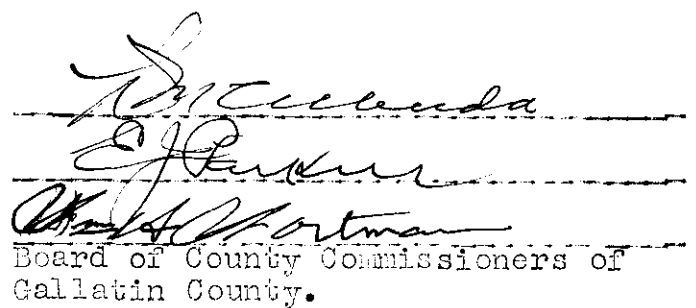 E J Parker
Wm H Wortman
Board of County Commissioners of
Gallatin County.